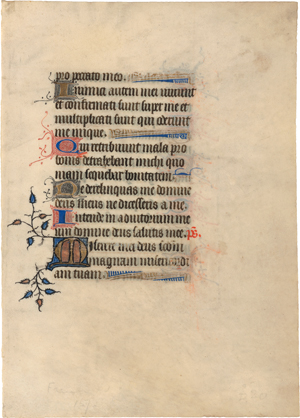 pro peccato meo.
Inimici autem mei vivunt
et confirmati sunt super me et
multiplicati sunt qui oderunt
me inique.
Qui retribuunt mala pro
bonis detrahebant michi quo
niam sequebar bonitatem.
Ne derelinquas me domine
deus meus ne discesseris a me.
Intende in adiutorium me
um domine deus salutis mee. ps.
Miserere mei deus scdm
magnam misericordi
am tuam.